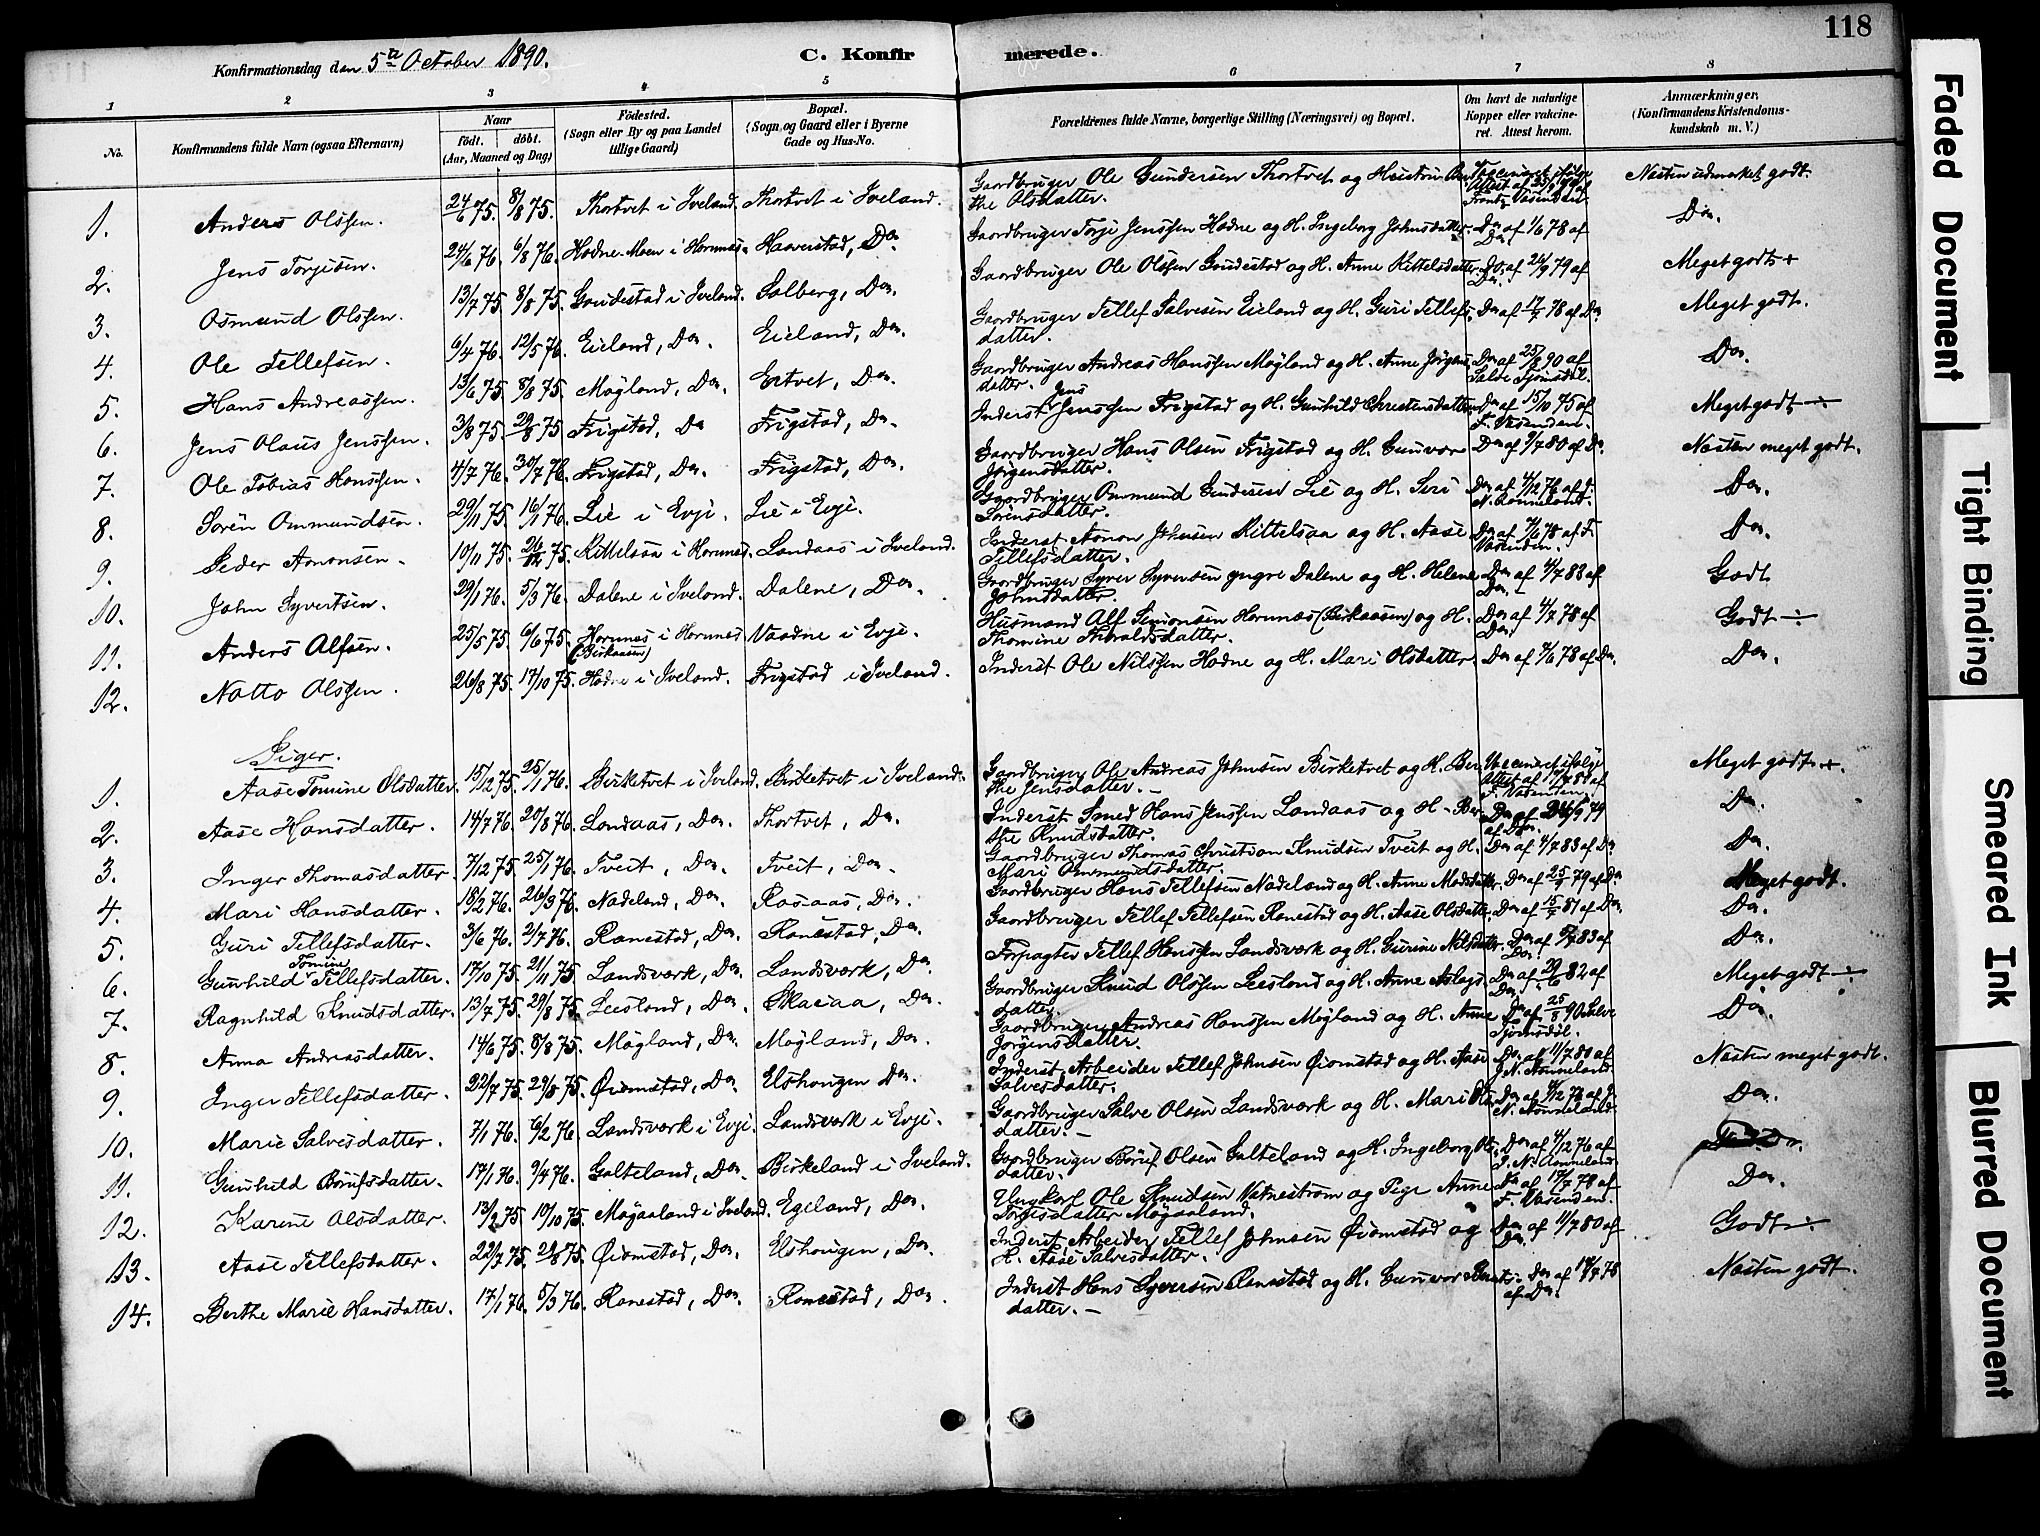 118
Konfirmationsdag den 5te October 1890. C. Konfirmerede.
1 2 3 4 5 6 7 8
No. Konfirmandens fulde Navn (ogsaa Efternavn) Naar födt. döbt. (Aar, Maaned og Dag) Födested. (Sogn eller By og paa Landet tillige Gaard) Bopæl. (Sogn og Gaard eller i Byerne Gade og Hus-No. Forældrenes fulde Navne, borgerlige Stilling (Næringsvei) og Bopæl. Om havt de naturlige Kopper eller vakcineret. Attest herom. Anmærkninger, (Konfirmandens Kristendomskundskab m. V.)
1. Anders Olssen. 24/6 75. 8/8 75. Thortvet i Iveland. Thortvet i Iveland. Gaardbruger Ole Gundersen Thortvet og Hustru Berthe Olsdatter. Næsten udmærket godt.
2. Jens Torjesen. 24/6 76. 6/8 76. Hodne Moen i Hornnes. Haaverstad, Do. Gaardbruger Torje Jenssen Hodne og H. Ingeborg Johnsdatter. Do af 1/6 78 af Do. Do.
3. Osmund Olssen. 13/7 75. 8/8 75. Gaudestad i Iveland. Solberg, Do. Gaardbruger Ole Olssen Gaudestad og H. Anne Kittelsdatter. Do. af 24/9 79 af Do. Meget godt +
4. Ole Tellefsen. 6/4 76. 12/5 76. Eieland, Do. Eieland, Do. Gaardbruger Tellef Salvesen Eieland og H. Guri Tellefsdatter. Do af 17/7 78 af Do. Meget godt.
5. Hans Andreassen. 13/6 75. 8/8 75. Møgland, Do. Ertvet, Do. Gaardbruger Andreas Hanssen Møgland og H. Anne Jørgensdatter. Do af 25/5 90 af Salve Tjomsdøl. Do.
6. Jens Olaus Jenssen. 3/8 75. 29/8 75. Frigstad, Do Frigstad, Do. Inderst Jens Jenssen Frigstad og H. Gunhild Chrestensdatter. Do af 15/10 75 af F. Vasenden. Meget godt ÷
7. Ole Tobias Hanssen. 4/7 76. 30/7 76. Frigstad, Do. Frigstad, Do. Gaardbruger Hans Olsen Frigstad og H. Gunvor Jørgensdatter. Do af 9/7 80 af Do Næsten meget godt.
8. Søren Ommundsen. 29/11 75. 16/1 76. Lie i Evje. Lie i Evje. Gaardbruger Ommund Gundersen Lie og H. Siri Sørensdatter. Do af 4/12 76 af J. N. Aameland. Do.
9. Peder Aanonsen. 10/11 75. 26/12 75. Kittelsaa i Hornnes. Landaas i Iveland. Inderst Aanon Johnsen Kittelsaa og H. Aase Tellefsdatter. Do af 7/6 78 af F. Vasenden. Do.
10. John Syvertsen. 29/1 76. 5/3 76. Dalene i Iveland. Dalene, Do. Gaardbruger Syver Syversen yngre Dalene og H. Helene Johnsdatter. Do af 4/7 83 af Do. Godt
11. Anders Alfsen. 25/5 75. 6/6 75. Hornnes i Hornnes (Birkaasen) Vaadne i Evje. Husmand Alf Simonsen Hornnæs (Birkaasen) og H. Thomine Tharaldsdatter. Do af 4/7 78 af Do. Godt ÷
12. Natto Olssen. 26/8 75. 17/10 75. Hodne i Iveland. Frigstad i Iveland. Inderst Ole Nilssen Hodne og H. Mari Olsdatter. Do af 7/6 78 af Do. Do.
Piger.
1. Aase Tomine Olsdatter. 15/12 75. 25/1 76. Birketvet i Iveland. Birketvet i Iveland. Gaardbruger Ole Andreas Johnsen Birketvet og H. Berthe Jensdatter. Meget godt +.
2. Aase Hansdatter. 14/7 76. 20/8 76. Landaas, Do. Thortvet, Do. Inderst Smed Hans Jenssen Landaas og H. Berthe Knudsdatter. Do.
3. Inger Thomasdatter. 7/12 75. 25/1 76. Tveit, Do. Tveit, Do. Gaardbruger Thomas Christian Knudsen Tveit og H. Mari Ommundsdatter. Do af 4/7 83 af Do Do.
4. Mari Hansdatter. 18/2 76. 26/3 76. Nadeland, Do. Rosaas, Do. Gaardbruger Hans Tellefsen Nadeland og H. Anne Madsdatter. Do af 25/9 79 af Do Meget godt.
5. Guri Tellefsdatter. 3/6 76. 2/7 76. Ranestad, Do. Ranestad, Do. Gaardbruger Tellef Tellefsen Ranestad og H. Aase Olsdatter. Do af 15/7 81 af Do. Do.
6. Gunhild Tomine Tellefsdatter. 17/10 75. 21/11 75 Landsværk, Do. Landsværk, Do. Forpagter Tellef Hanssen Landsværk og H. Gurine Nilsdatter. Do.
7. Ragnhild Knudsdatter. 13/7 75. 29/8 75. Leesland, Do. Skaiaa, Do. Gaardbruger Knud Olssen Leesland og H. Anne Aslagsdatter. Do af 29/6 82 af Do. Meget godt ÷
8. Anna Andreasdatter. 14/6 75. 8/8 75. Møgland, Do. Møgland, Do. Gaardbruger Andreas Hanssen Møgland og H. Anne Jørgensdatter. Do af 25/5 90 Salve Tjomsdøl. Do.
9. Inger Tellefsdatter. 22/7 75. 29/8 75. Øiomstad, Do. Elshougen Do. Inderst, Arbeider Tellef Johnsen Øiomstad og H. Aase Salvesdatter. Do af 11/7 80 af J. N. Aameland. Næsten meget godt.
10. Marie Salvesdatter. 7/1 76. 6/2 76. Landsværk i Evje. Landsværk i Evje. Gaardbruger Salve Olsen Landsværk og H. Mari Olsdatter. J. N. Aameland. Do.
11. Gunhild Børufsdatter. 17/1 76. 9/4 76. Galteland, Do. Birkeland i Iveland. Gaardbruger Børuf Olsen Galteland og H. Ingeborg Olsdatter. Do af 4/12 76 af J. N. Aameland.
12. Karine Olsdatter. 13/2 75. 10/10 75. Møgaaland i Iveland. Egeland, Do. Ungkarl Ole Knudsen Vatnestrøm og Pige Anne Torjesdatter Møgaaland. Do af 17/7 78 af F. Vasenden. Do.
13. Aase Tellefsdatter. 22/7 75. 29/8 75. Øiomstad, Do. Elshougen, Do. Inderst Arbeider Tellef Johnsen Øiomstad og H. Aase Salvesdatter. Do af 11/7 80 af Do. Godt ÷
14. Berthe Marie Hansdatter. 17/1 76. 5/3 76. Ranestad, Do. Ranestad, Do. Inderst Hans Syversen Ranestad og H. Gunvor Berntsdatter. Do af 17/7 78 af Do. Næsten godt.
Faded Document
Tight Binding
Smeared Ink
Blurred Document